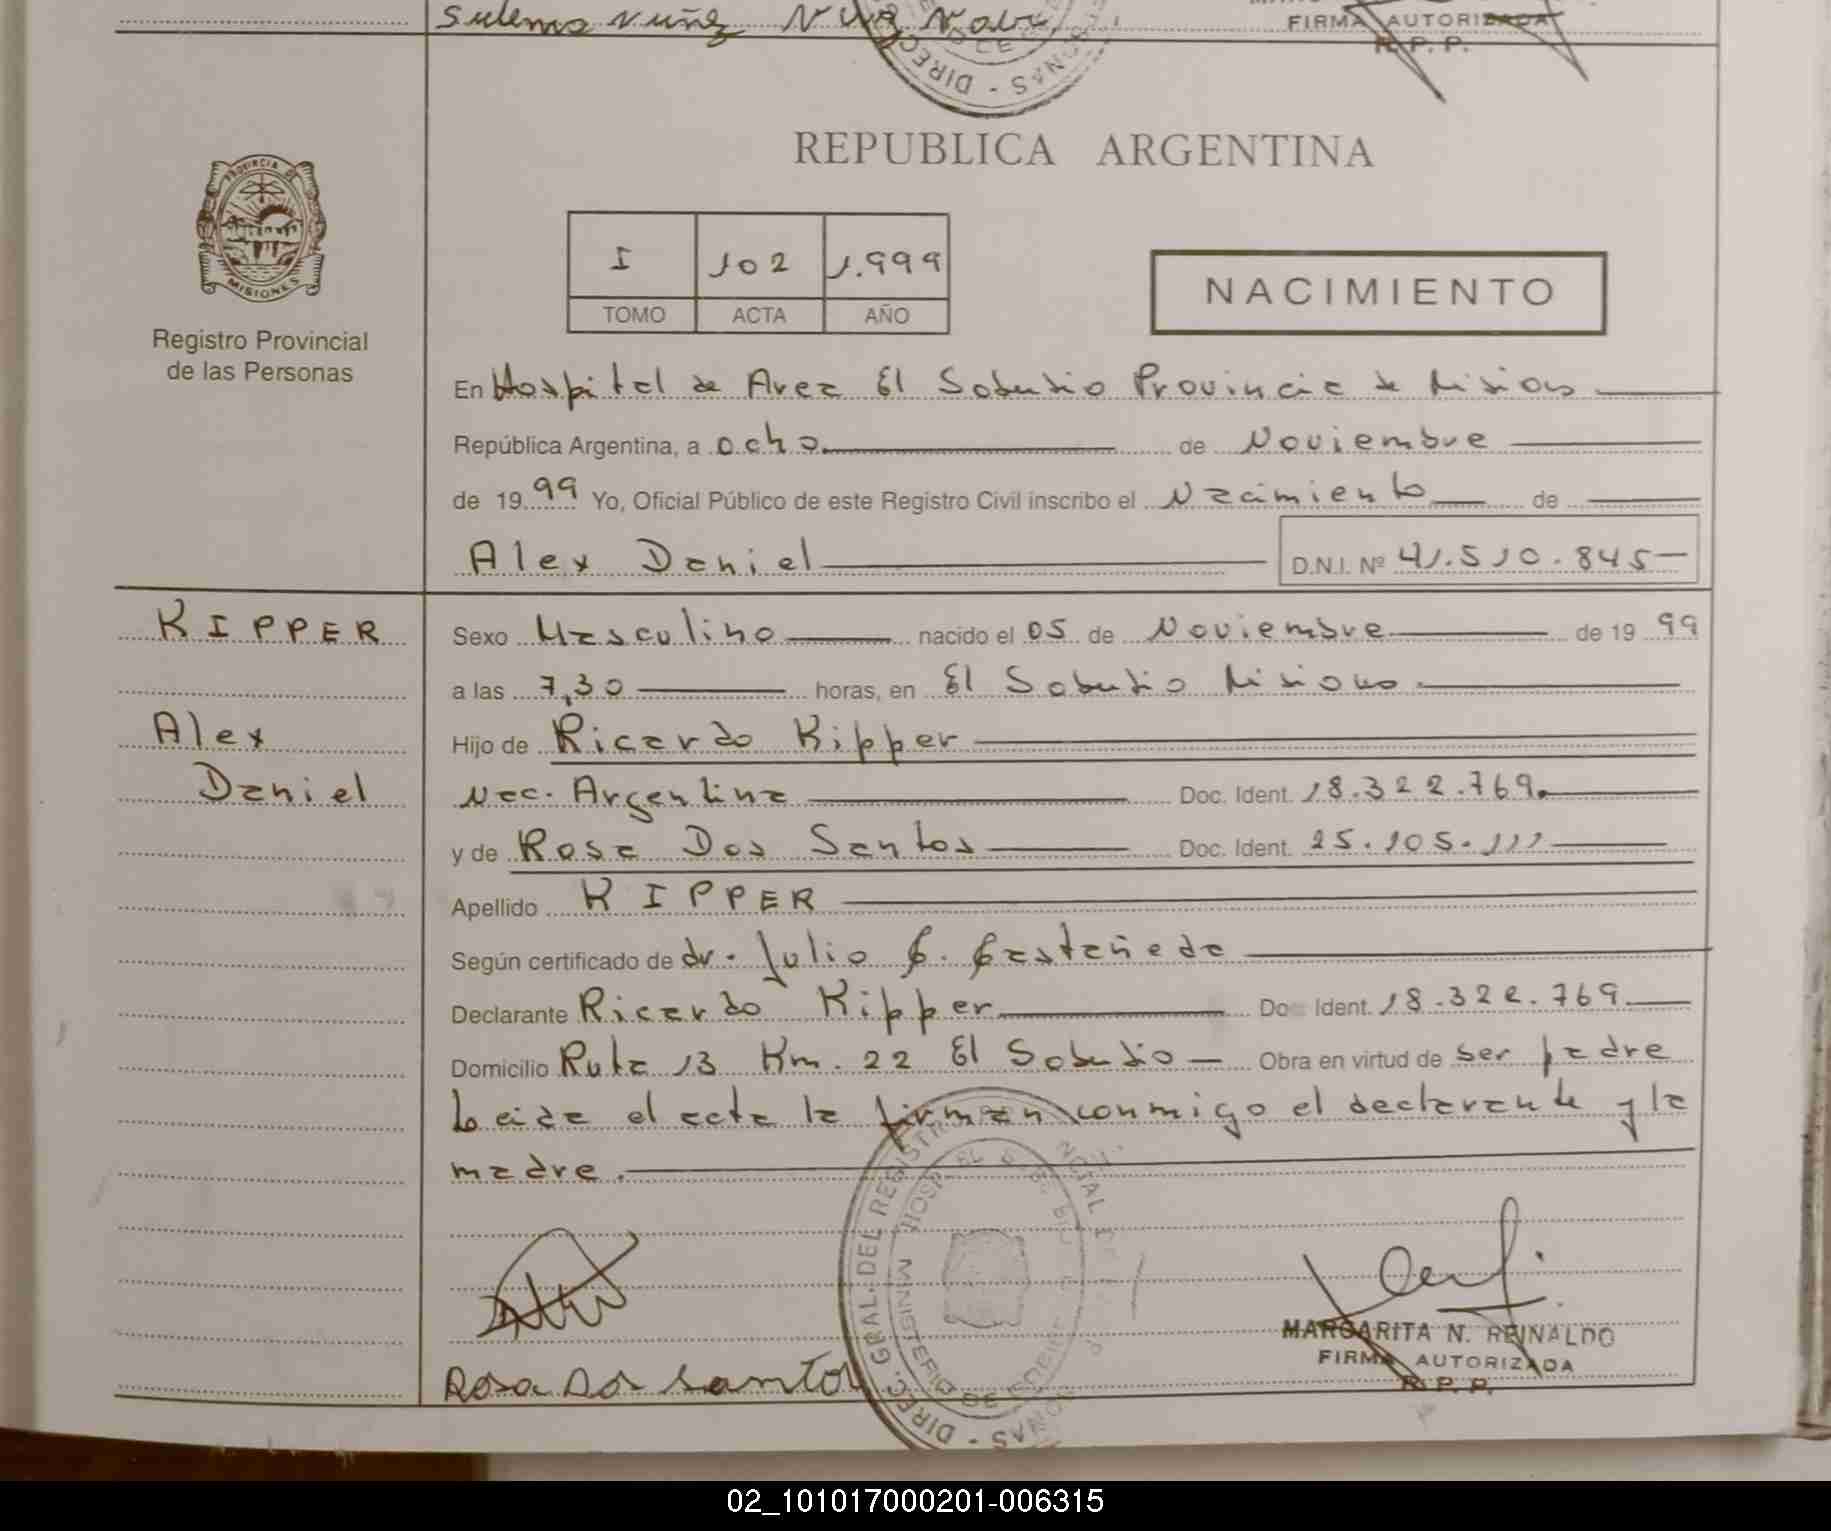 Sulema Nuñez
FIRMA AUTORIZADA
R. P. P.
DIREC - SANO
PROVINCIA DE
MISIONES
Registro Provincial
de las Personas
REPUBLICA ARGENTINA
I 102 1.999
TOMO ACTA AÑO
NACIMIENTO
En Hospital de Area El Soberbio Provincia de Misiones
República Argentina, a ocho de Noviembre
de 1999 Yo, Oficial Público de este Registro Civil inscribo el Nacimiento de
Alex Daniel D.N.I. Nº 41.510.845
KIPPER
Alex
Daniel
Sexo Masculino nacido el 05 de Noviembre de 1999
a las 7,30 horas, en El Soberbio Misiones
Hijo de Ricardo Kipper
Nac. Argentina Doc. Ident. 18.322.769.
y de Rosa Dos Santos Doc. Ident. 25.105.111
Apellido KIPPER
Según certificado de dr. Julio C. Castañeda
Declarante Ricardo Kipper Doc Ident. 18.322.769
Domicilio Ruta 13 Km. 22 El Soberbio Obra en virtud de ser padre
Leida el acta la firman conmigo el declarante y la
madre.
DIREC. GRAL. DEL REGISTR
MINISTERIO DE GOBIE
Rosa Dos Santos
MARGARITA N. REINALDO
FIRMA AUTORIZADA
R. P. P.
02_101017000201-006315